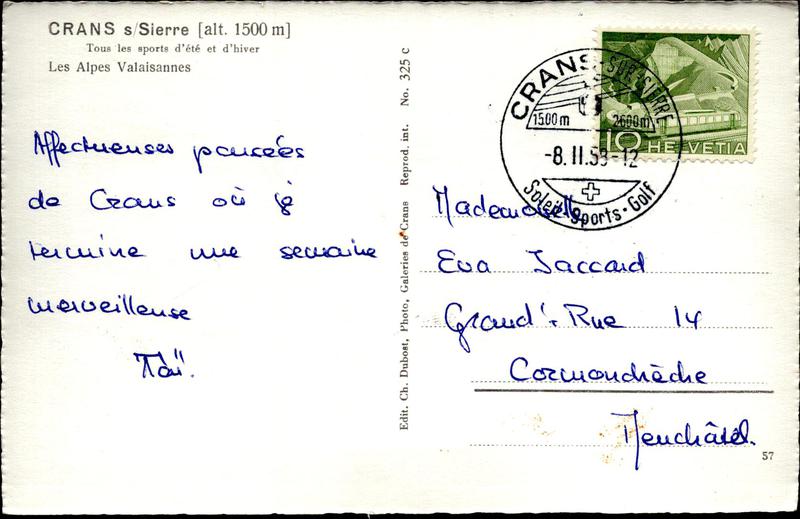 CRANS s/Sierre [alt. 1500 m]
Tous les sports d'été et d'hiver
Les Alpes Valaisannes
Affectueuses pensées
de Crans où je
termine une semaine
merveilleuse
Edit. Ch. Dubost, Photo, Galeries de Crans Reprod. int. No. 325 c
CRANS-SUR-SIERRE
1500m 2600m
-8.II.53-12
Soleil-Sports-Golf
10 HELVETIA
Mademoiselle
Eva Jaccard
Grand'-Rue 14
Cormondrèche
Neuchâtel
57